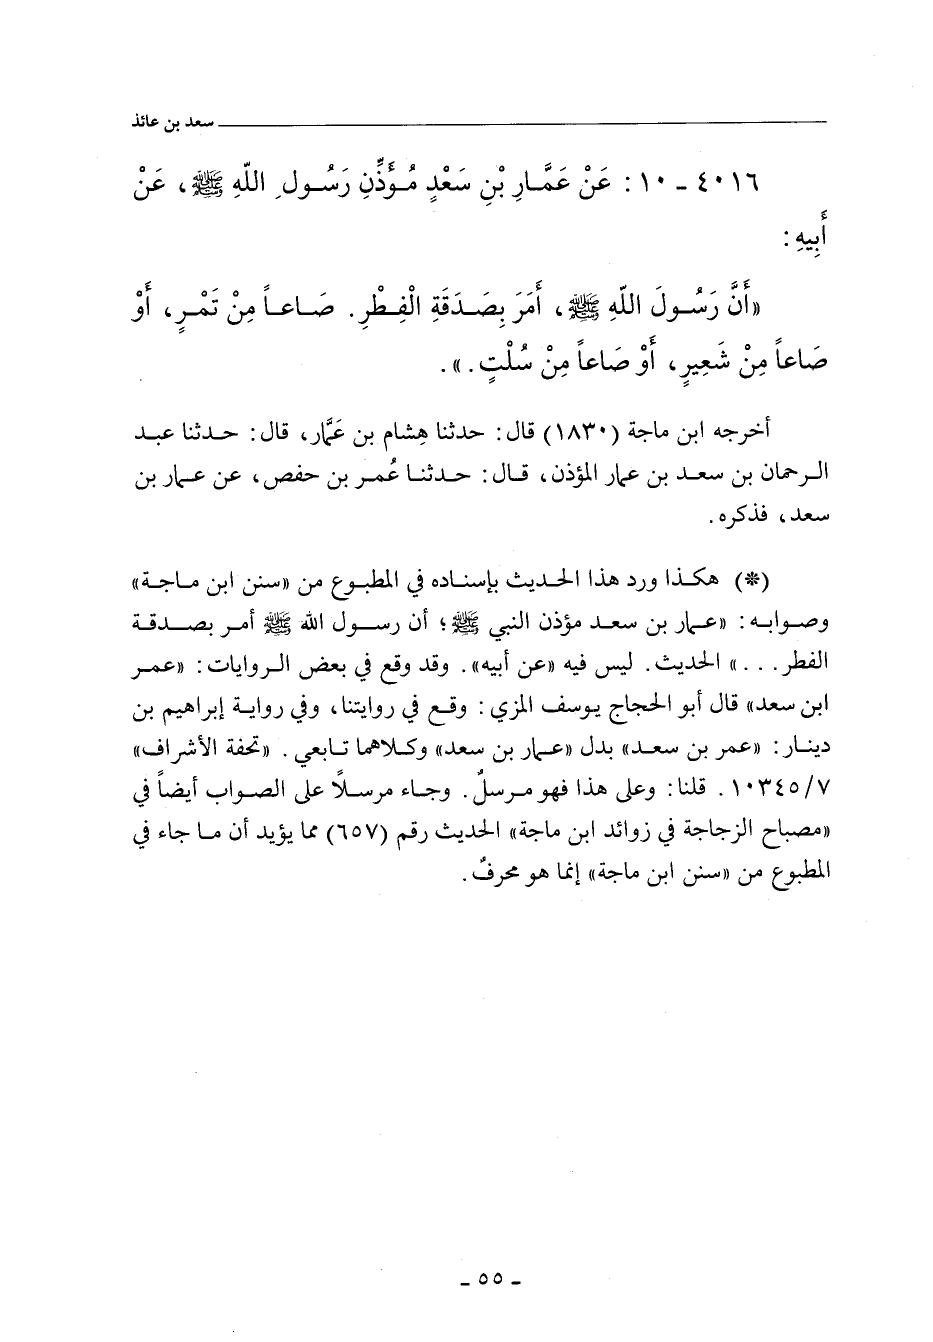 سعد بن عائذ
٤٠١٦ - ١٠ : عَنْ عَمَّارِ بْنِ سَعْدٍ مُؤَذِّنِ رَسُولِ اللّهِ ﷺ، عَنْ
أَبِيهِ :
«أَنَّ رَسُولَ اللّهِ ﷺ، أَمَرَ بِصَدَقَةِ الْفِطْرِ. صَاعاً مِنْ تَمْرٍ، أَوْ
صَاعاً مِنْ شَعِيرٍ، أَوْ صَاعاً مِنْ سُلْتٍ. ».
أخرجه ابن ماجة (١٨٣٠) قال: حدثنا هِشام بن عَمَّار، قال: حدثنا عبد
الرحمان بن سعد بن عمار المؤذن، قال: حدثنا عُمر بن حفص، عن عمار بن
سعد، فذكره.
(*) هكذا ورد هذا الحديث بإسناده في المطبوع من «سنن ابن ماجة»
وصوابه: «عمار بن سعد مؤذن النبي ﷺ؛ أن رسول الله ﷺ أمر بصدقة
الفطر . . .» الحديث. ليس فيه «عن أبيه». وقد وقع في بعض الروايات: «عمر
ابن سعد» قال أبو الحجاج يوسف المزي: وقع في روايتنا، وفي رواية إبراهيم بن
دينار: «عمر بن سعد» بدل «عمار بن سعد» وكلاهما تابعي. «تحفة الأشراف»
١٠٣٤٥/٧. قلنا: وعلى هذا فهو مرسلٌ. وجاء مرسلاً على الصواب أيضاً في
«مصباح الزجاجة في زوائد ابن ماجة» الحديث رقم (٦٥٧) مما يؤيد أن ما جاء في
المطبوع من «سنن ابن ماجة» إنما هو محرفٌ.
- ٥٥ -